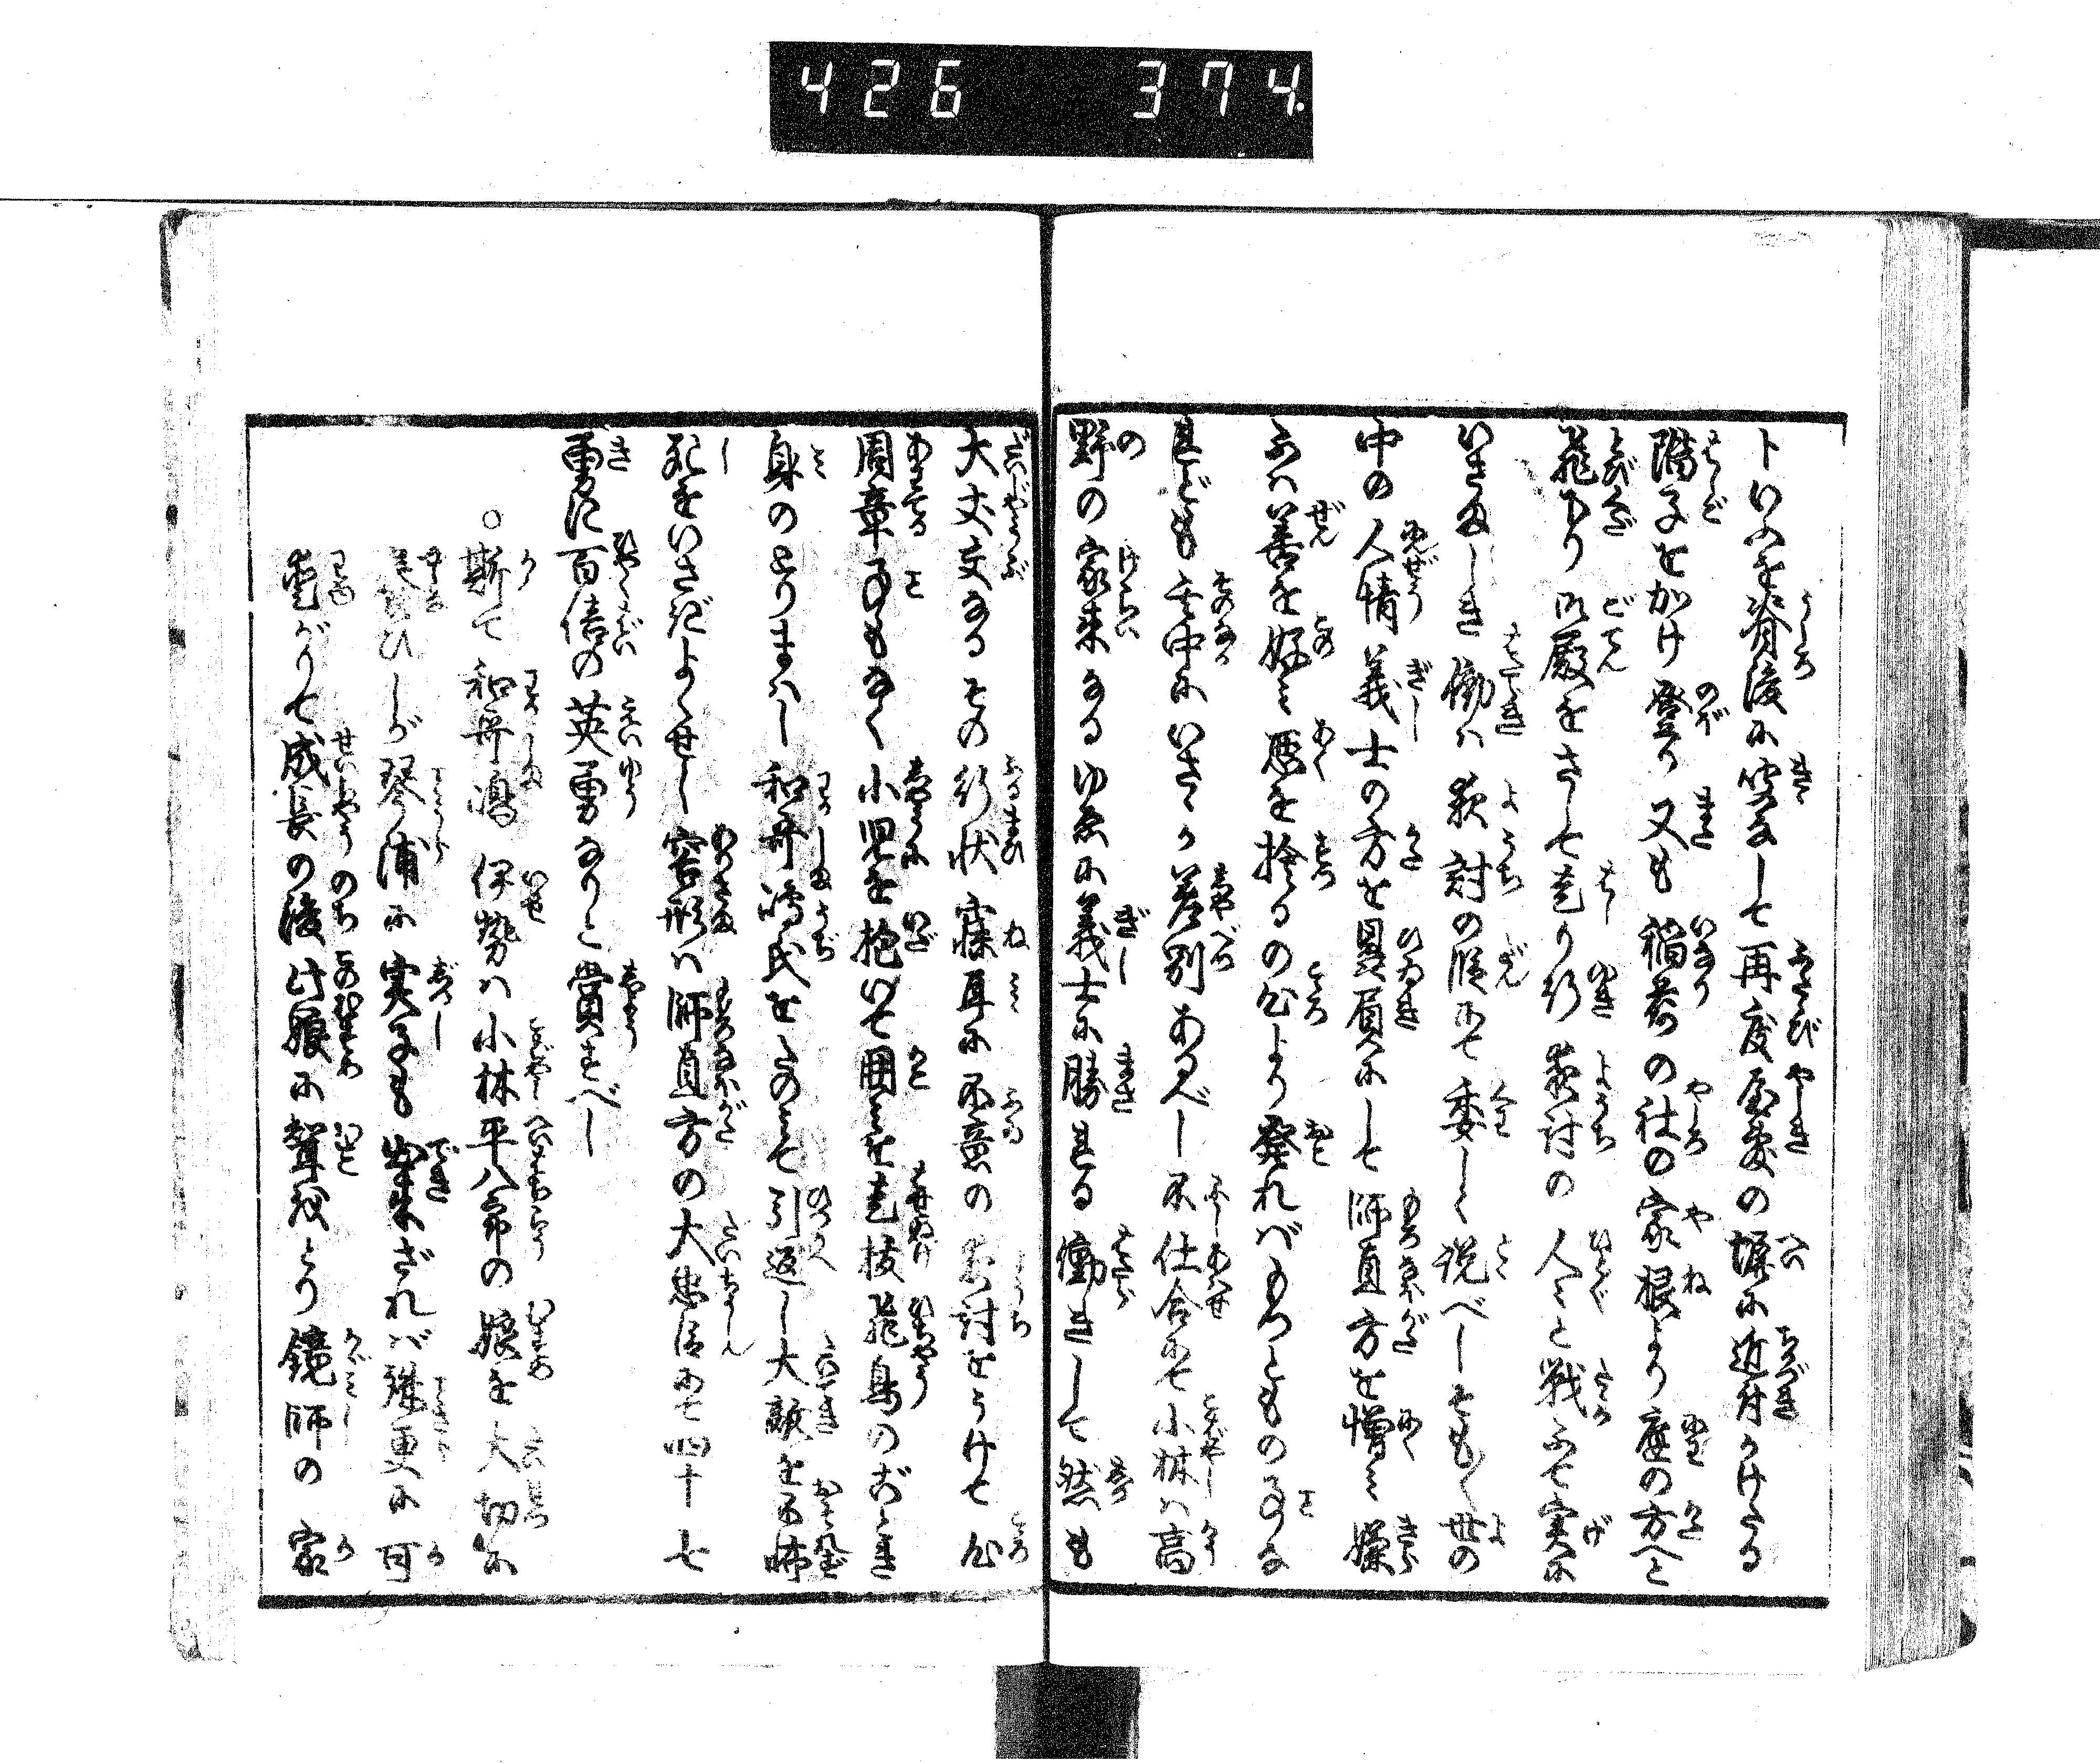 426 374.
トいふを脊後に笑なして再度屋敷の塀に近付かけたる
階子をかけ登り又も稲荷の社の家根より庭の方へと
飛下り御殿をさして走り行夜討の人々と戦ふて実に
いさましき働は夜討の段にて委しく説べしそも〳〵世の
中の人情義士の方を贔屓にして師直方を憎み嫌
ふは善を好み悪を捨るの心より発ればもつともの事な
れども其中にいさゝか差別あるべし不仕合にて小林は高
野の家来なるゆゑに義士に勝れる働きして然も
大丈夫なるその行状寐耳に不意の夜討をうけて心
周章事もなく小児を抱いて囲みを走抜飛鳥のごとき
身のとりまはし和舟嶋氏をたのみて引返し大敵を不怖
死をいさぎよくせし容形は師直方の大忠臣にて四十七
勇に百倍の英勇なりと賞すべし
○斯て和舟嶋伊勢は小林平八郎の娘を大切に
養ひしが琴浦に実子も出来ざれば殊更に可
愛がりて成長の後此娘に聟をとり鏡師の家